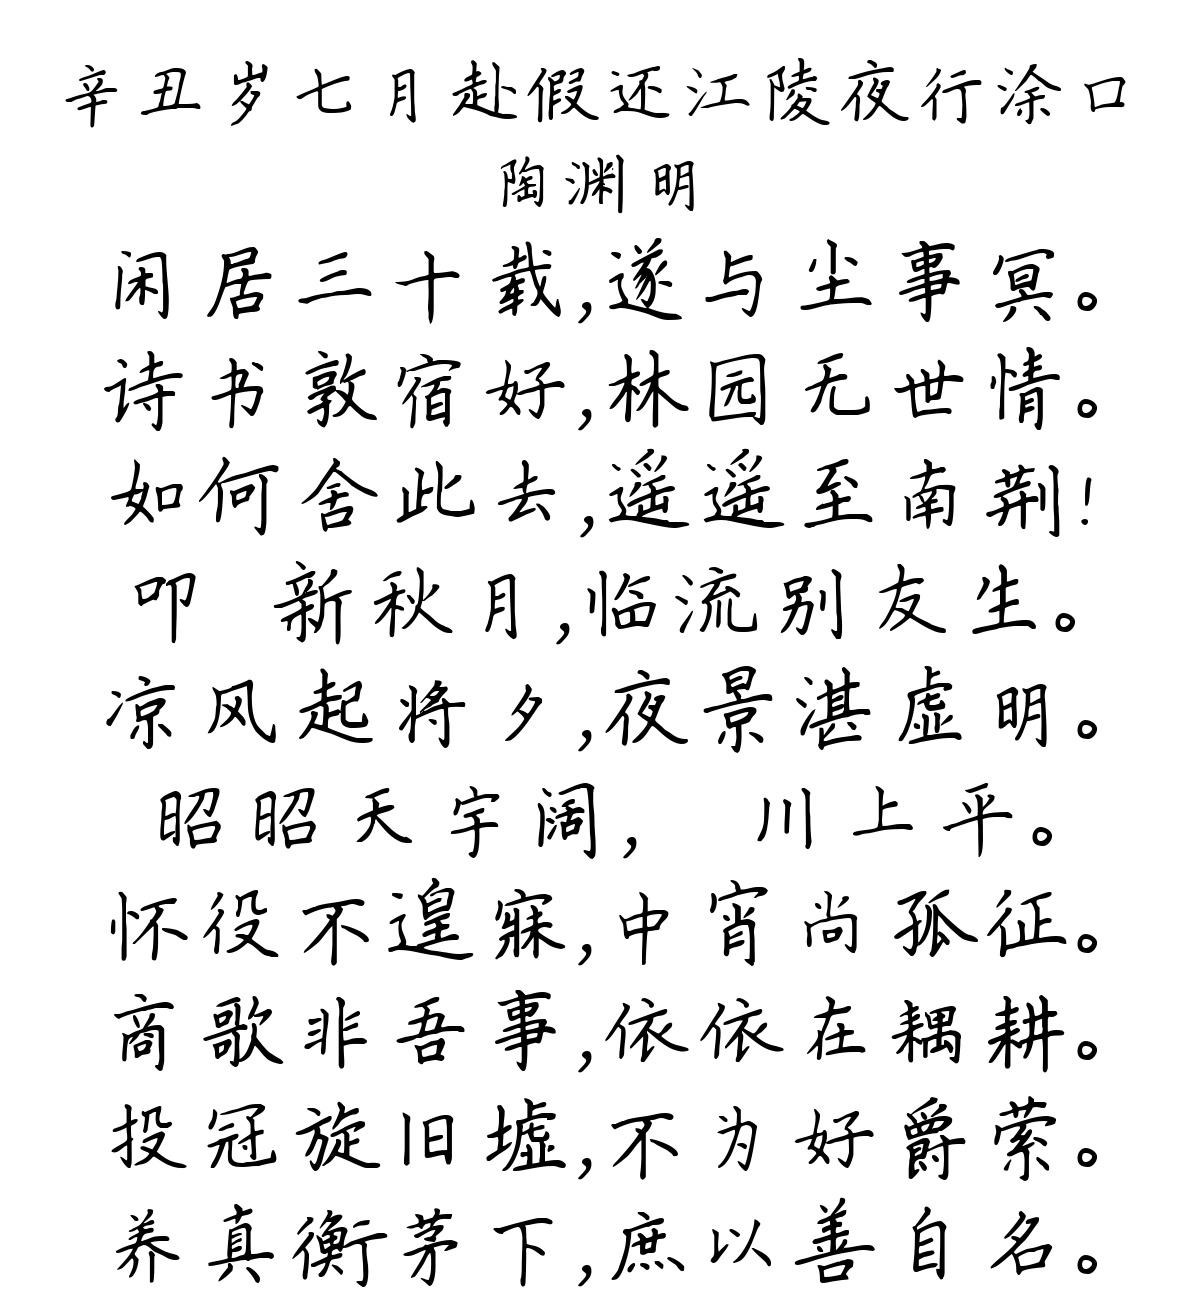 辛丑岁七月赴假还江陵夜行涂口
陶渊明
闲居三十载,遂与尘事冥。
诗书敦宿好,林园无世情。
如何舍此去,遥遥至南荆!
叩 新秋月,临流别友生。
凉风起将夕,夜景湛虚明。
昭昭天宇阔, 川上平。
怀役不遑寐,中宵尚孤征。
商歌非吾事,依依在耦耕。
投冠旋旧墟,不为好爵萦。
养真衡茅下,庶以善自名。